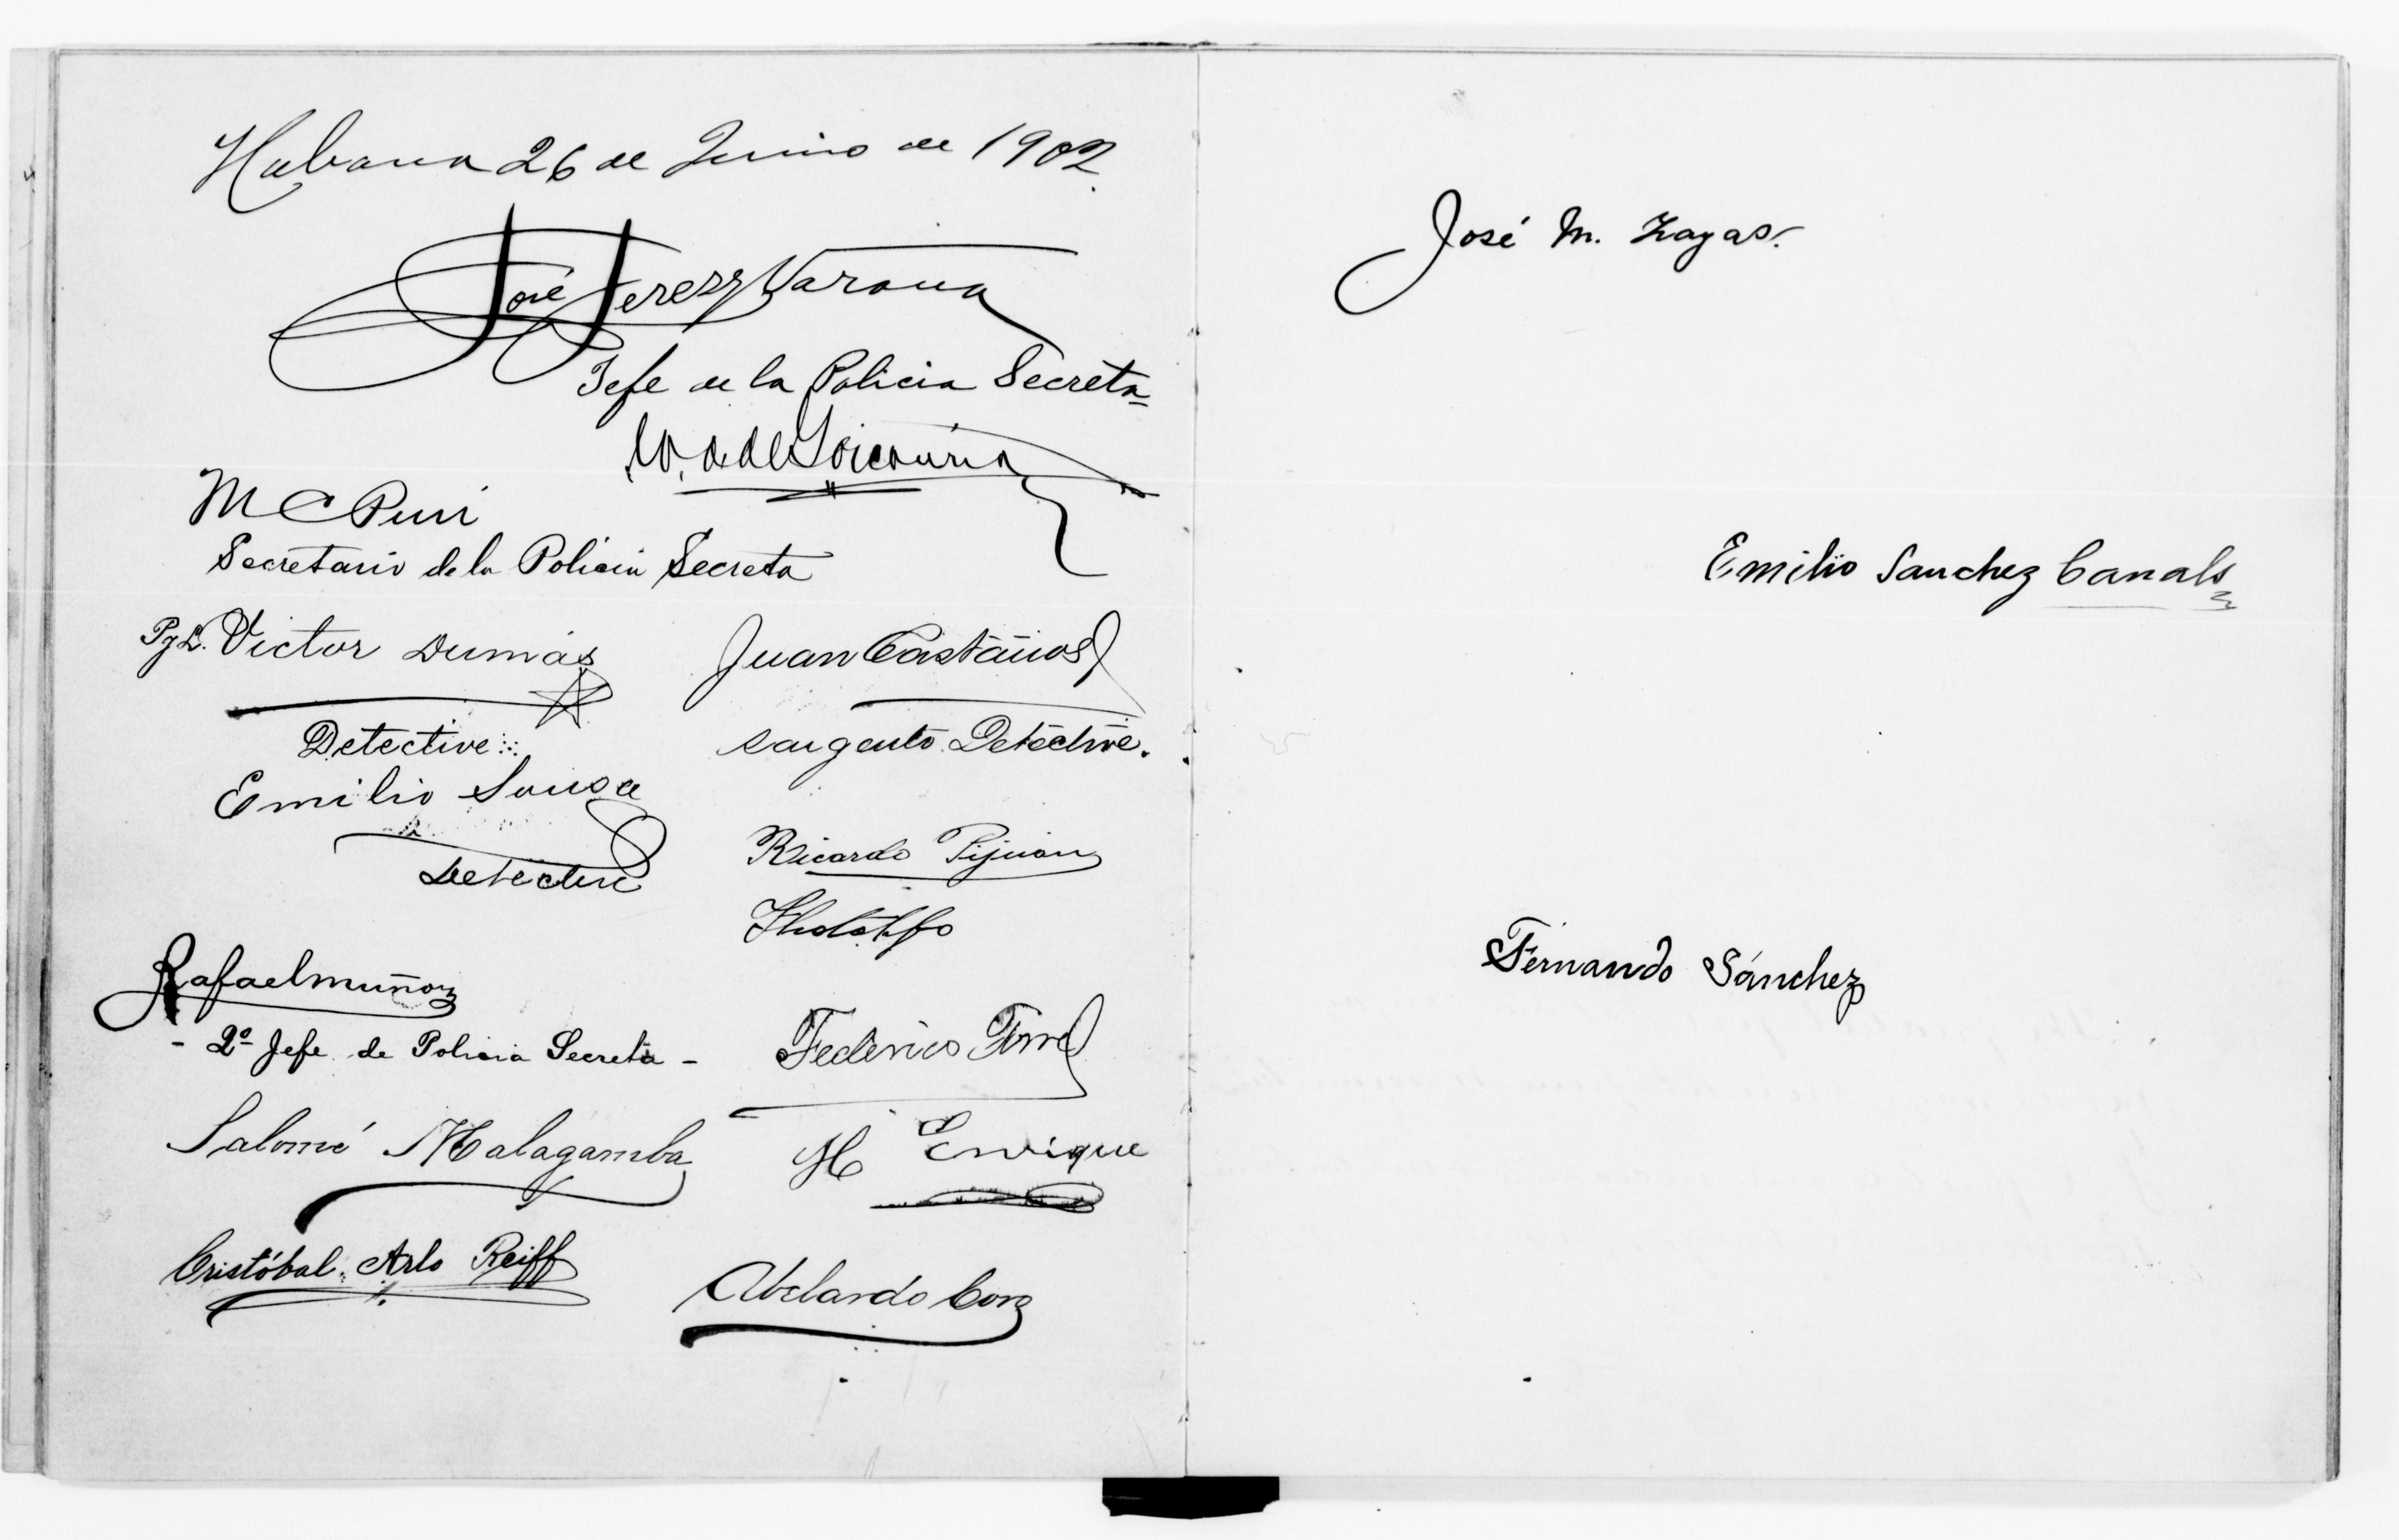 Habana 26 de Junio de 1902.
José Jerez y Varona
Jefe de la Policia Secreta
M C
Secretario de la Policia Secreta
Victor Dumás
Detective
Emilio Sousa
Detective
Juan Castaños
sargento Detective.
Ricardo Pijuan
Rafael muñoz
- 2º Jefe de Policia Secreta -
Federico
Salomé Malagamba
M Enrique
Cristóbal Arlo Reiff
Abelardo
José M. Zayas.
Emilio Sanchez Canals
Fernando Sánchez